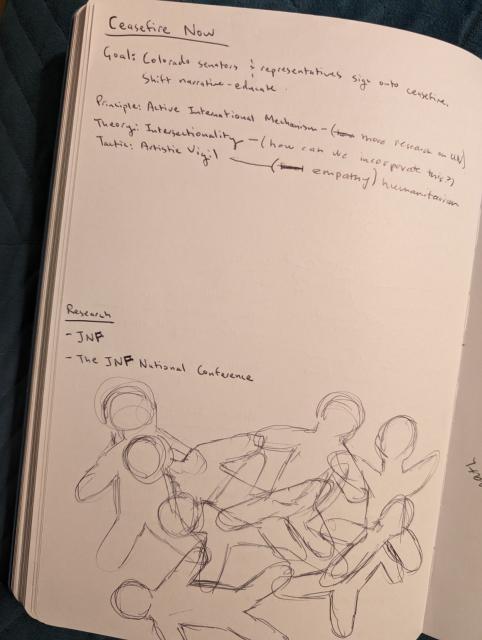 Ceasefire Now
Goal: Colorado senators & representatives sign onto ceasefire.
Shift narrative - educate
Principle: Active International Mechanism - (more research on UN)
Theory: Intersectionality - (how can we incorporate this?)
Tactic: Artistic Vigil (empathy) humanitarian
Research
- JNF
- The JNF National Conference